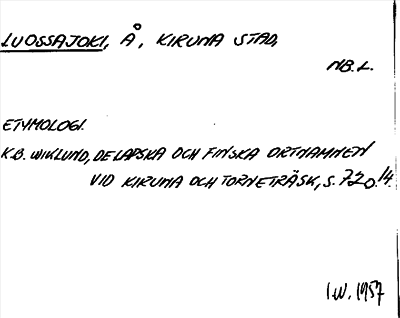 LUOSSAJOKI, Å, KIRUNA STAD,
NB. L.
ETYMOLOGI.
K.B. WIKLUND, DE LAPSKA OCH FINSKA ORTNAMNEN
VID KIRUNA OCH TORNETRÄSK, S. 7 2 o. 14.
I.W. 1957